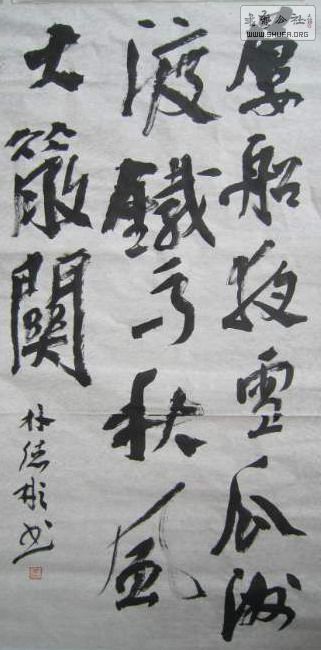 書法公社
WWW.SHUFA.ORG
樓船夜雪瓜洲
渡鐵馬秋風
大散關
林德彬书